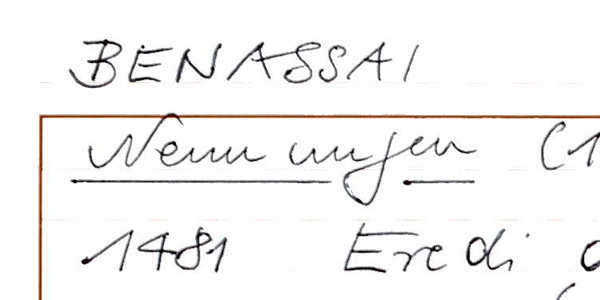 BENASSAI
Nennungen (1
1481 Eredi